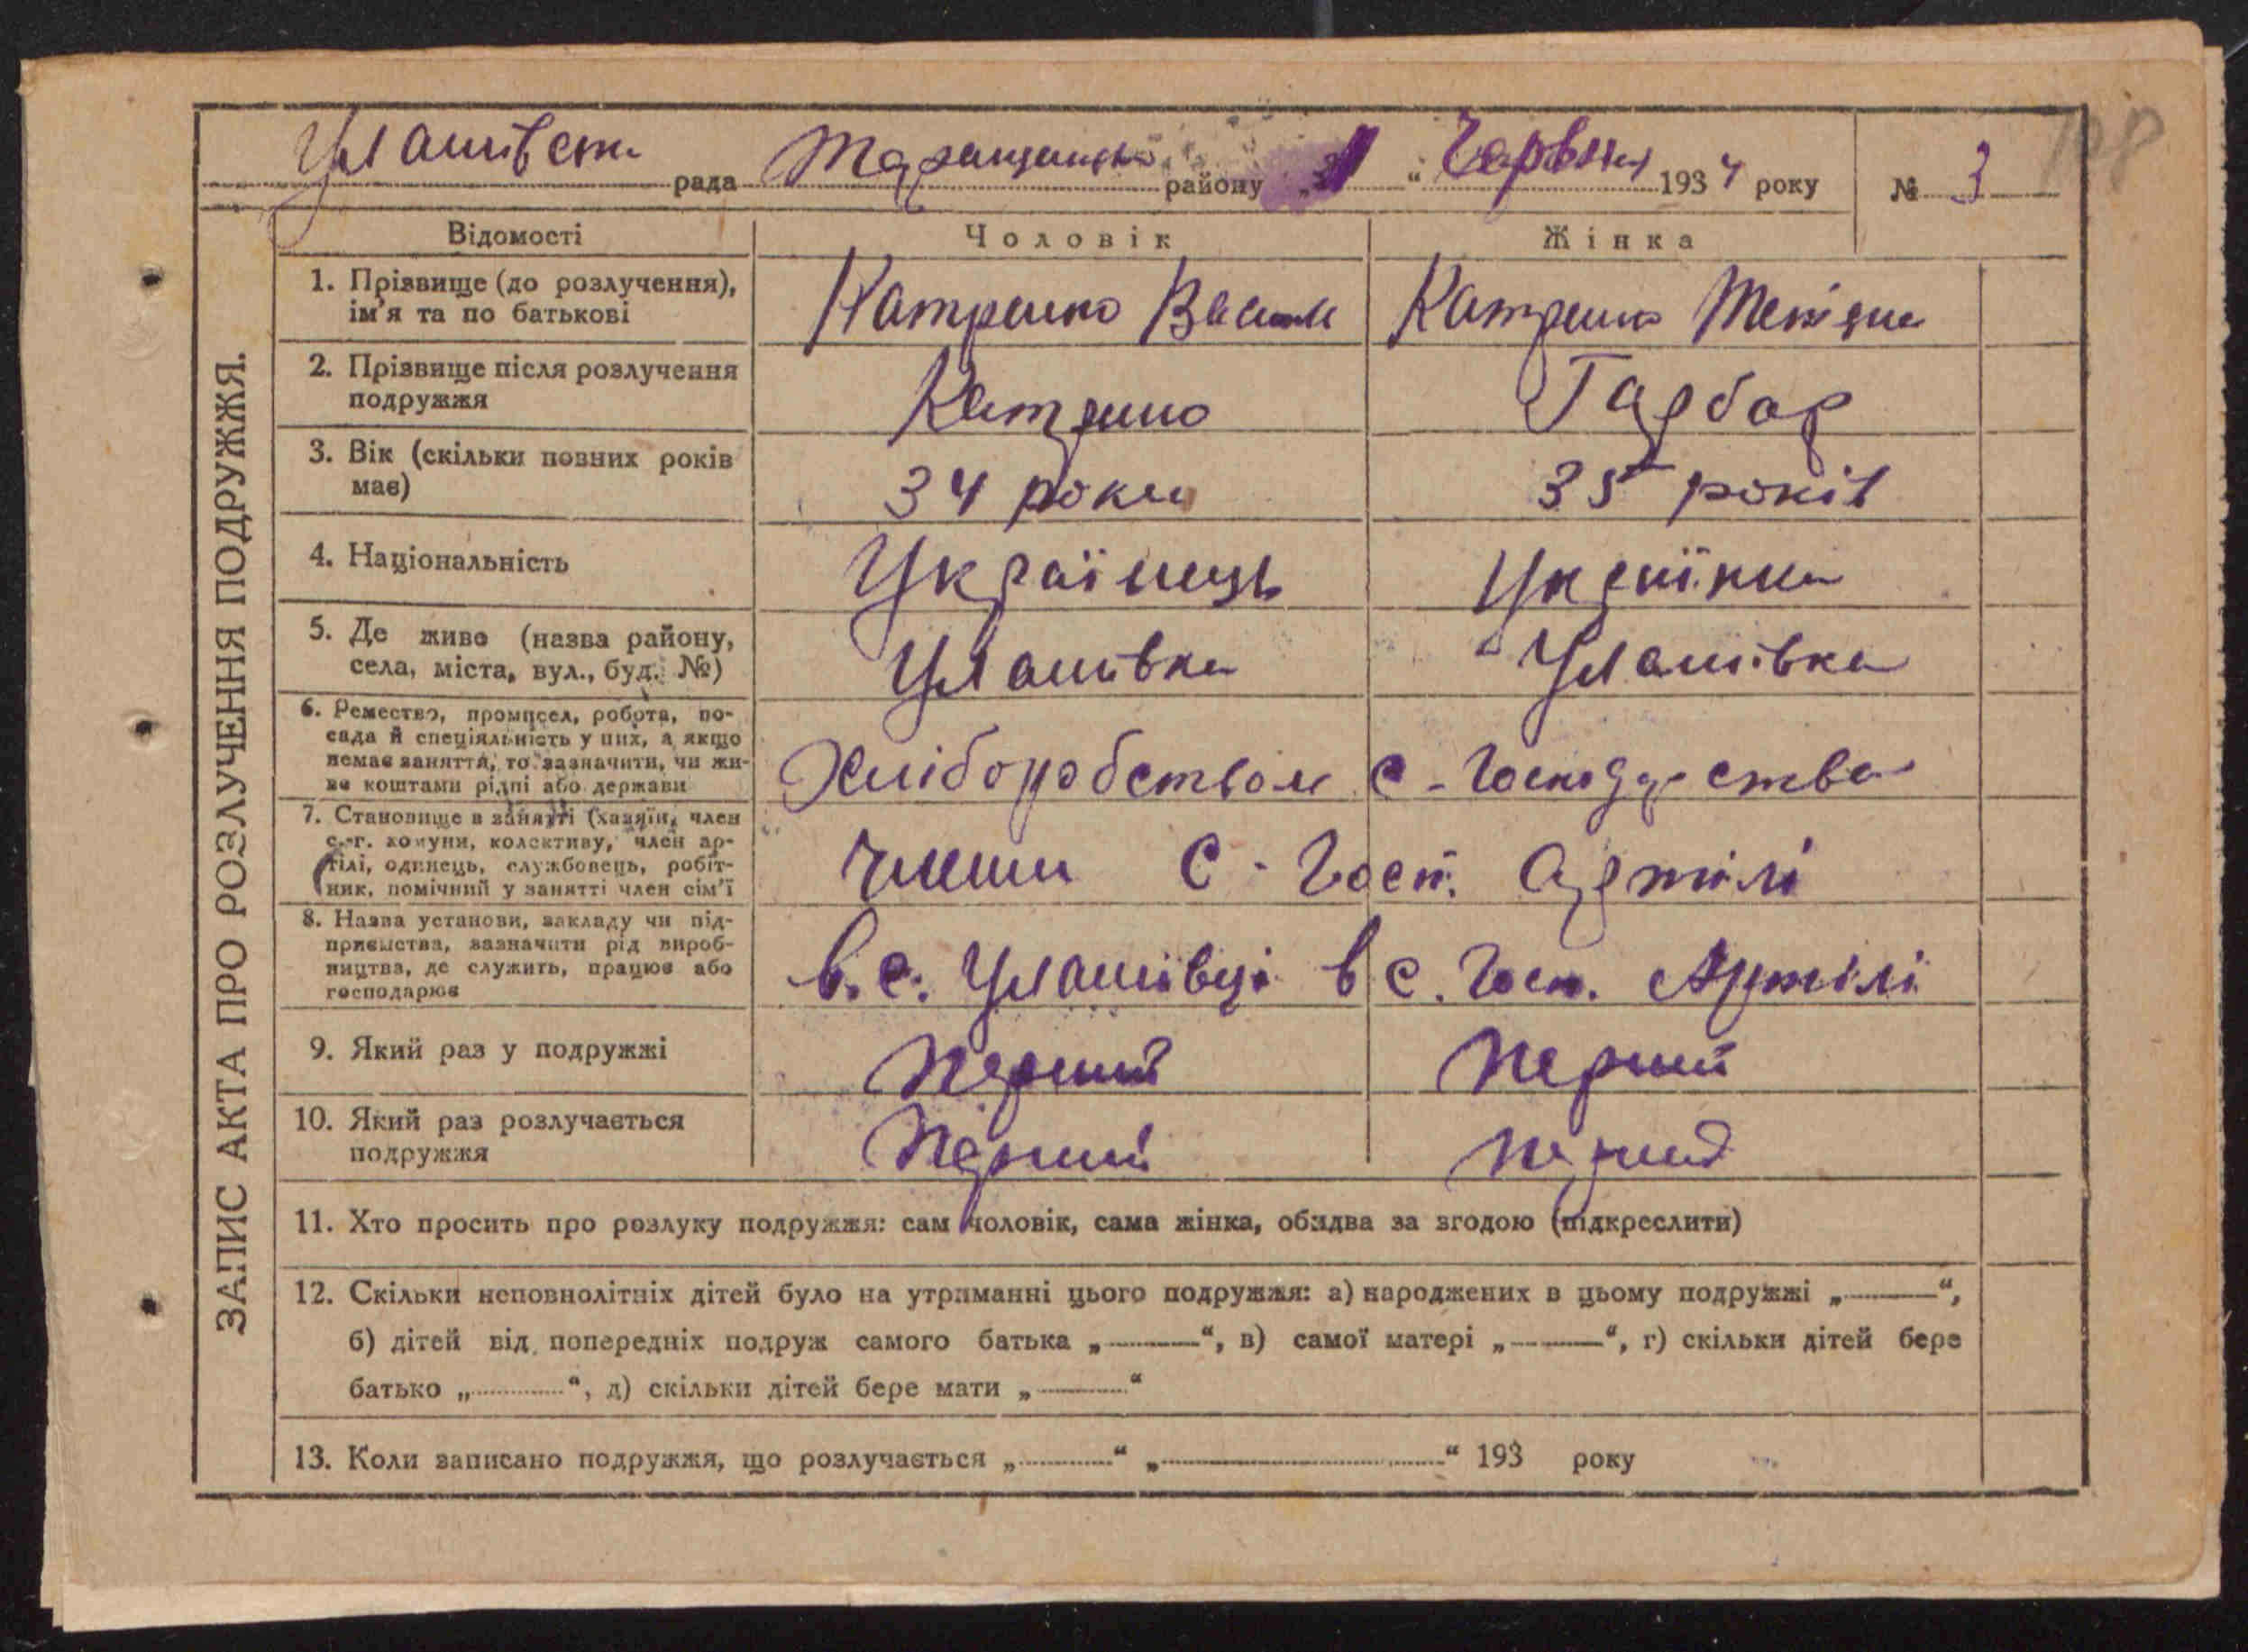 Улашівська рада Таращанського району „ “ Червня 1934 року № 3
108
ЗАПИС АКТА ПРО РОЗЛУЧЕННЯ ПОДРУЖЖЯ.
Відомості Чоловік Жінка
1. Прізвище (до розлучення), ім'я та по батькові Катренко Василь Катренко
2. Прізвище після розлучення подружжя Катренко
3. Вік (скільки повних років має) 34 роки 35 років
4. Національність Українець Українка
5. Де живе (назва району, села, міста, вул., буд. №) Улашівка Улашівка
6. Ремество, промисел, робота, по-
сада й спеціяльність у них, а якщо
немає заняття, то зазначити, чи жи-
ве коштами рідні або держави Хліборобством с-господарства
7. Становище в занятті (хазяїн, член
с.-г. комуни, колективу, член ар-
тілі, одинець, службовець, робіт-
ник, помічний у занятті член сім'ї члени С-Госп. Артілі
8. Назва установи, закладу чи під-
приємства, зазначити рід вироб-
ництва, де служить, працює або
господарює в.с. Улашівці в с. Госп. Артілі
9. Який раз у подружжі Перший Перший
10. Який раз розлучається подружжя Перший перший
11. Хто просить про розлуку подружжя: сам чоловік, сама жінка, обидва за згодою (підкреслити)
12. Скільки неповнолітніх дітей було на утриманні цього подружжя: а) народжених в цьому подружжі „ “,
б) дітей від попередніх подруж самого батька „ “, в) самої матері „ “, г) скільки дітей бере
батько „ “, д) скільки дітей бере мати „ “
13. Коли записано подружжя, що розлучається „ “ „ “ 193 року